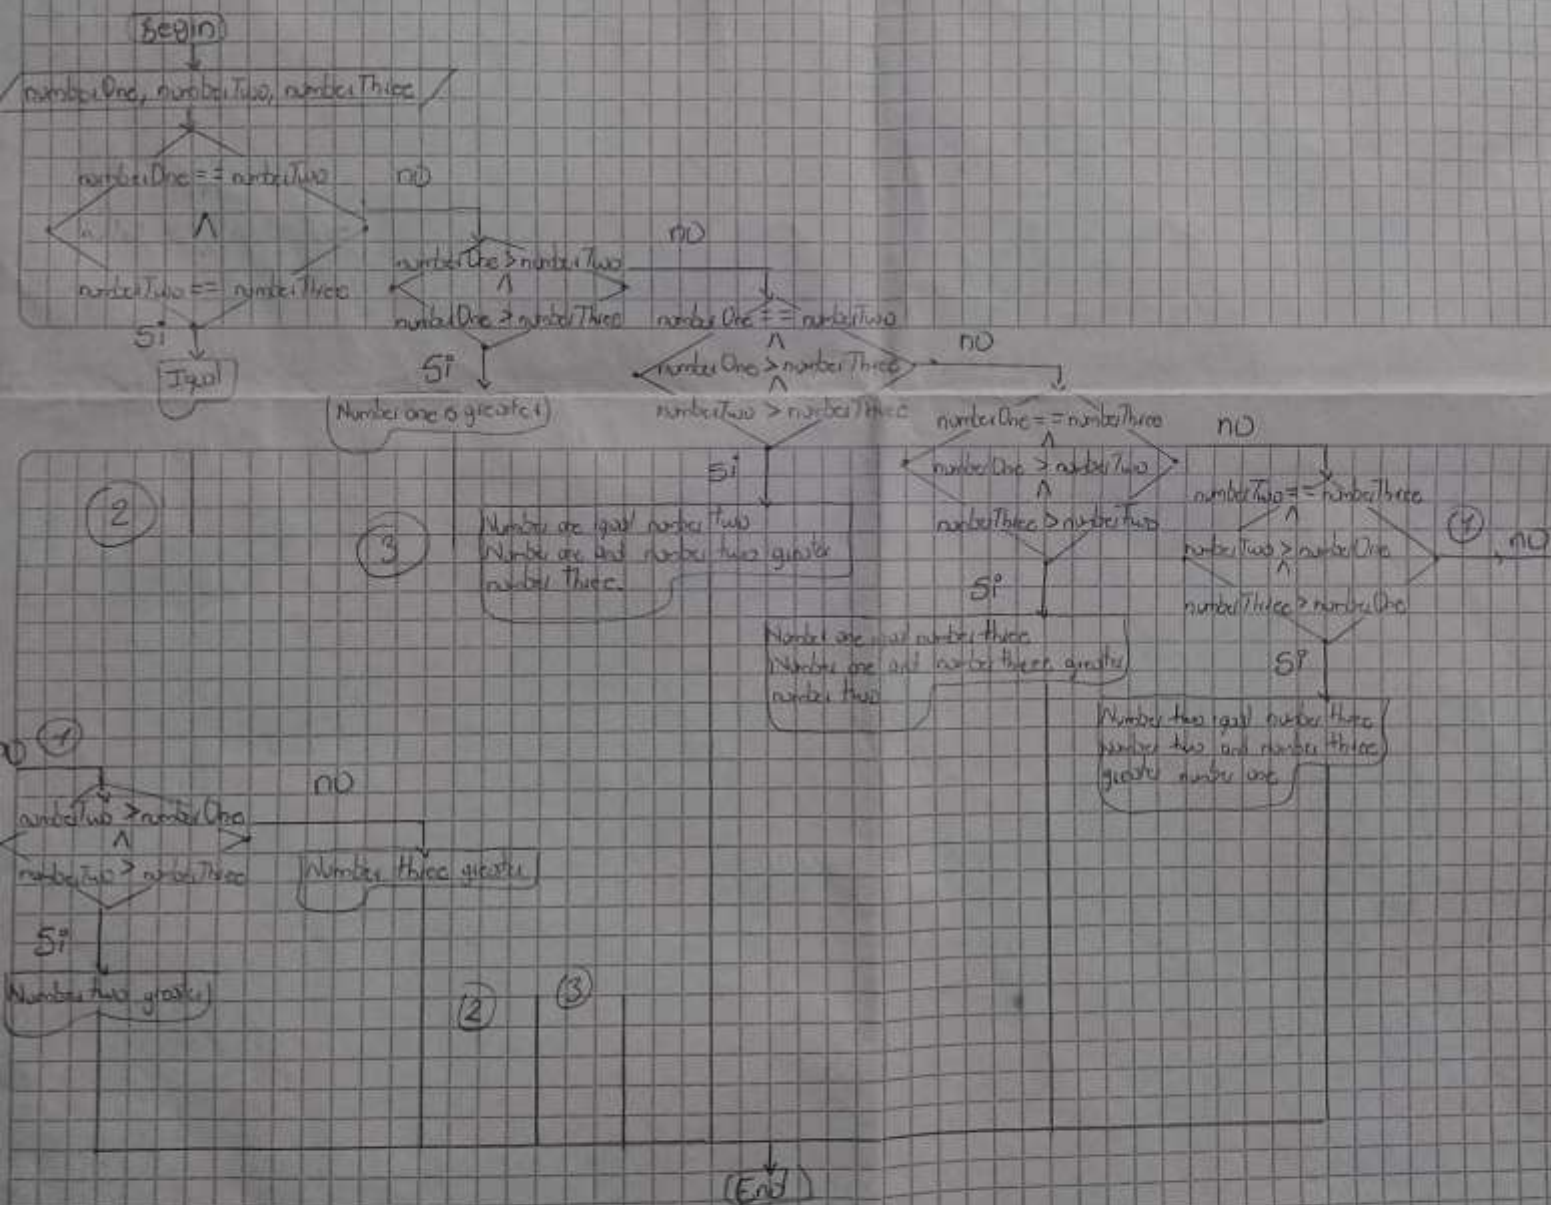 Begin
numberOne, numberTwo, numberThree
numberOne == numberTwo
no
∧
numberTwo == numberThree
Si
Iqual
numberOne > numberTwo
no
∧
numberOne > numberThree
Si
Number one is greater
numberOne == numberTwo
∧
no
numberOne > numberThree
∧
numberTwo > numberThree
Si
Number one iqual number two
Number one and number two greater
number three.
numberOne == numberThree
no
∧
numberOne > numberTwo
∧
numberThree > numberTwo
Si
Number one iqual number three
Number one and number three greater
number two
numberTwo == numberThree
∧
numberTwo > numberOne
∧
numberThree > numberOne
1
no
Si
Number two iqual number three
Number two and number three
greater number one
2
3
no
1
numberTwo > numberOne
no
∧
numberTwo > numberThree
Number three greater
Si
Number two greater
2
3
End